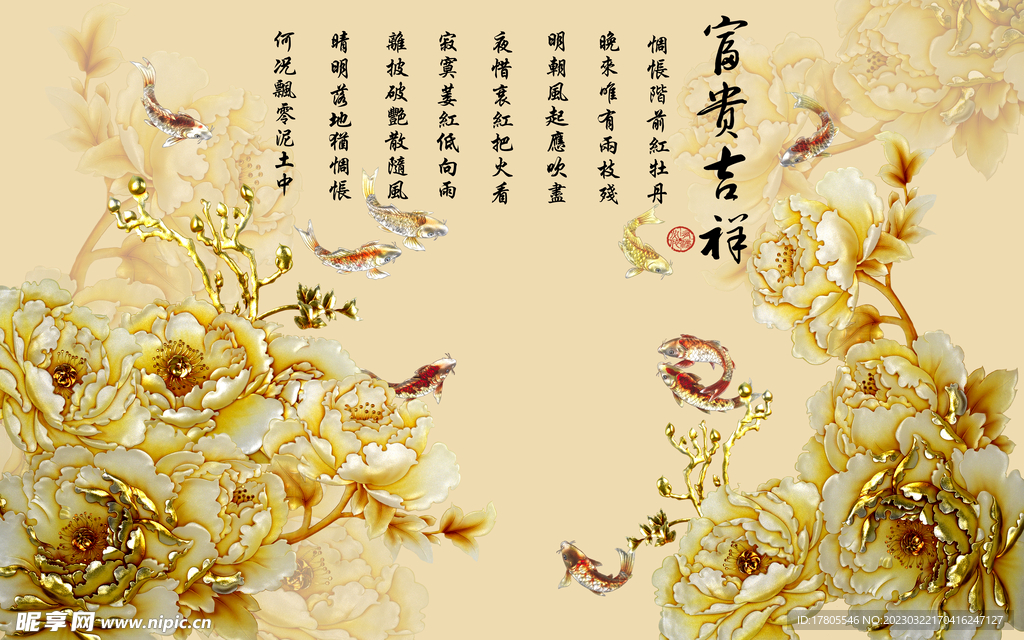 富貴吉祥
惆悵階前紅牡丹
晚來唯有兩枝殘
明朝風起應吹盡
夜惜衰紅把火看
寂寞萎紅低向雨
離披破艷散隨風
晴明落地猶惆悵
何況飄零泥土中
昵享网 www.nipic.cn
ID:17805546 NO:20230322170416247127